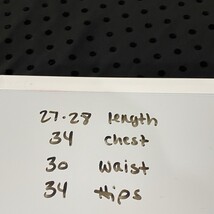 27-28 length
34 chest
30 waist
34 Hips